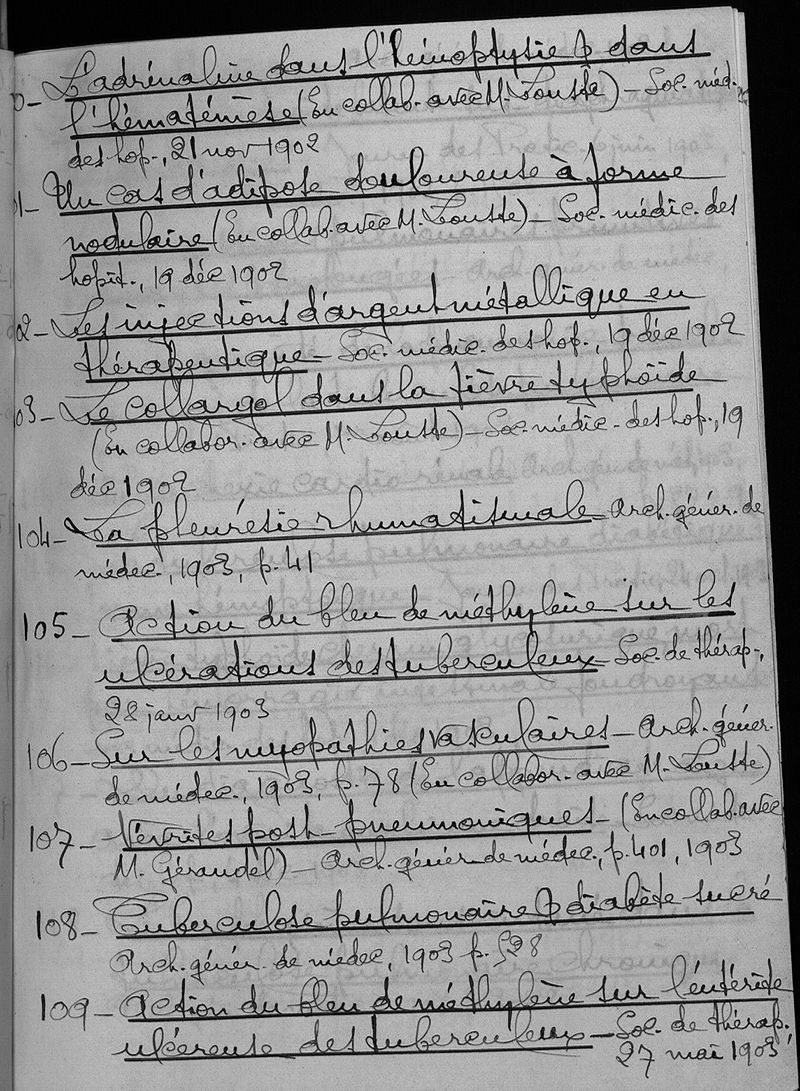 0- L'adrénaline dans l'hémoptysie & dans
l'hématémèse (En collab. avec M. Loustte) - Soc. méd.
des hop., 21 nov 1902
01- Un cas d'adipose douloureuse à forme
nodulaire (En collab. avec M. Loustte) - Soc. médic. des
hopit., 19 déc 1902
02- Les injections d'argent métallique en
thérapeutique - Soc. médic. des hop., 19 déc 1902
03- Le collargol dans la fièvre typhoïde
(En collabor. avec M. Loustte) - Soc. médic. des hop., 19
déc 1902
104- La pleurésie rhumatismale - Arch. génér. de
médec., 1903, p. 41
105- Action du bleu de méthylène sur les
ulcérations des tuberculeux - Soc. de thérap.,
28 janv 1903
106- Sur les myopathies vasculaires - Arch. génér.
de médec., 1903, p. 78 (En collabor. avec M. Loustte)
107- Névrites post-pneumoniques - (En collab. avec
M. Géraudel) - Arch. génér. de médec., p. 401, 1903
108- Tuberculose pulmonaire & diabète sucré
Arch. génér. de médec, 1903 p. 528
109- Action du bleu de méthylène sur l'entérite
ulcéreuse des tuberculeux - Soc. de thérap.
27 mai 1903